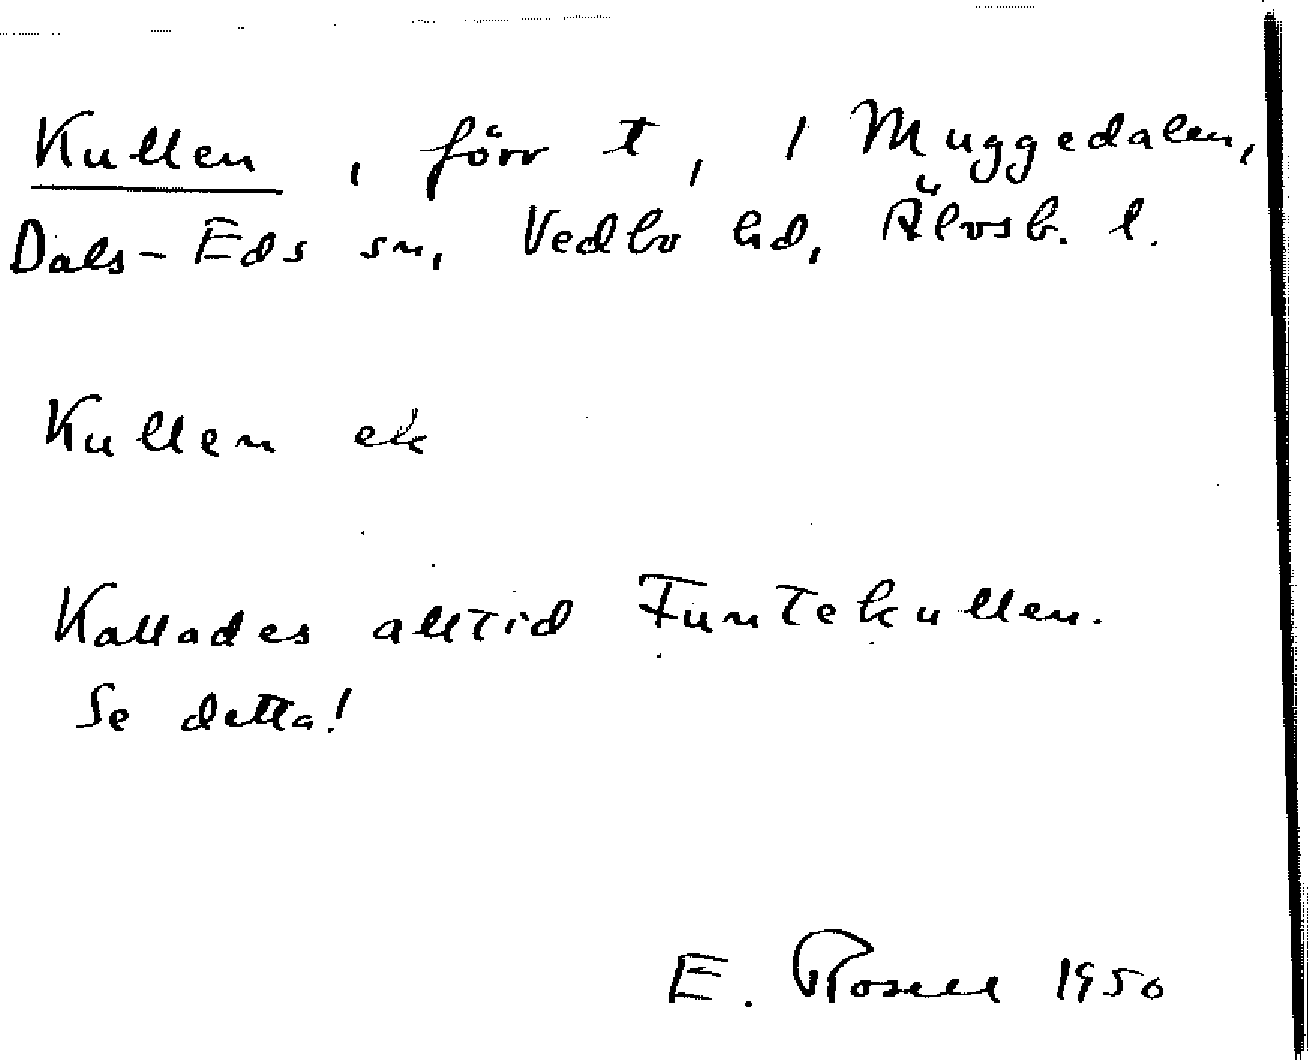 Kullen, förr t, i Muggedalen,
Dals-Eds sn, Vedbo hd, Älvsb. l.
Kullen ek
Kallades alltid Funtekullen.
Se detta!
E. Rosell 1950